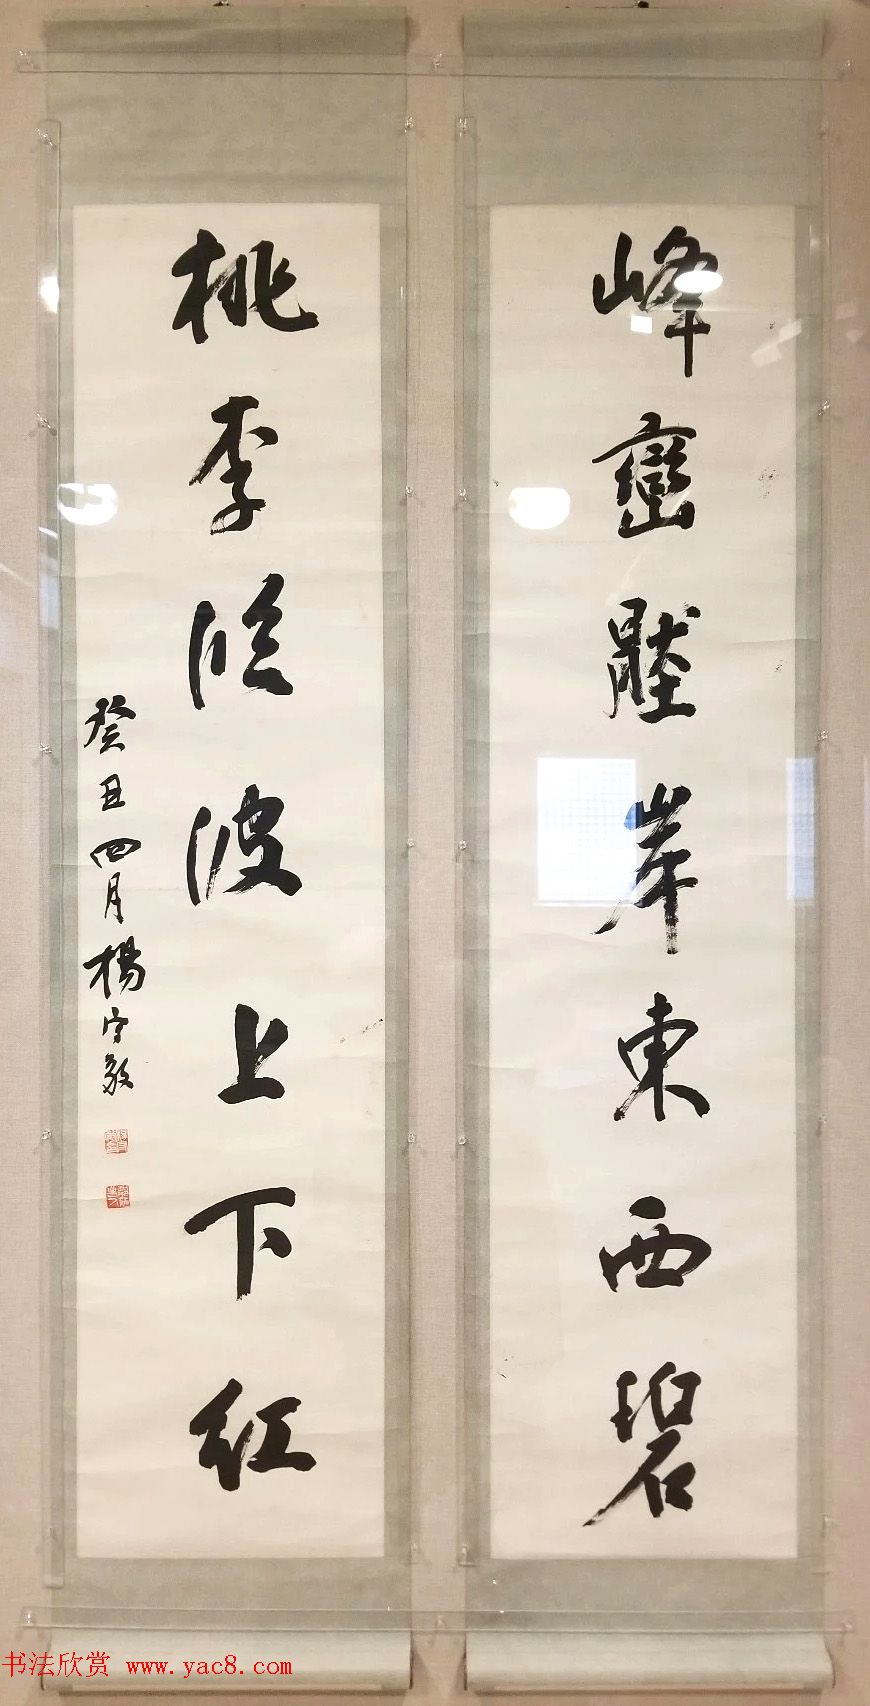 峰巒壓岸東西碧
桃李臨波上下紅
癸丑四月楊守敬
书法欣赏 www.yac8.com